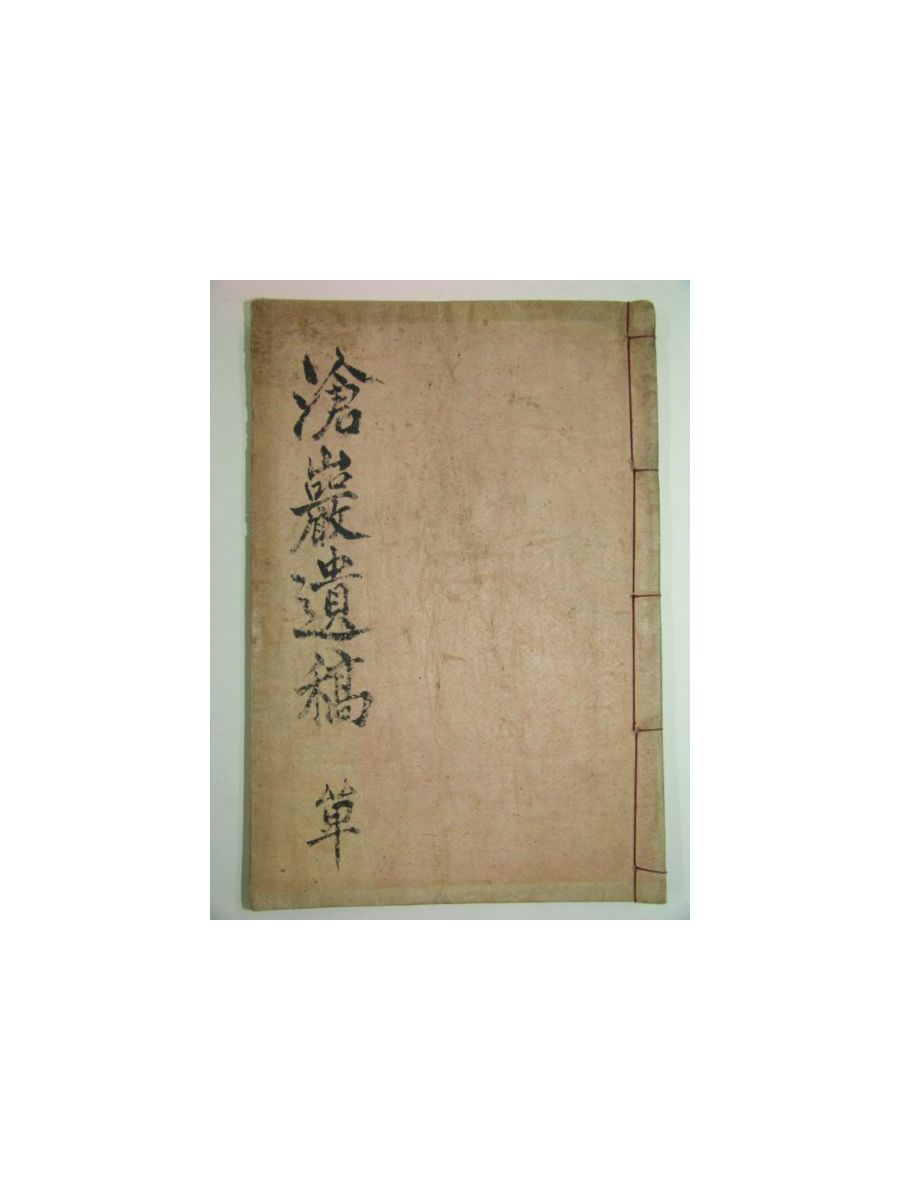 滄巖遺稿 單